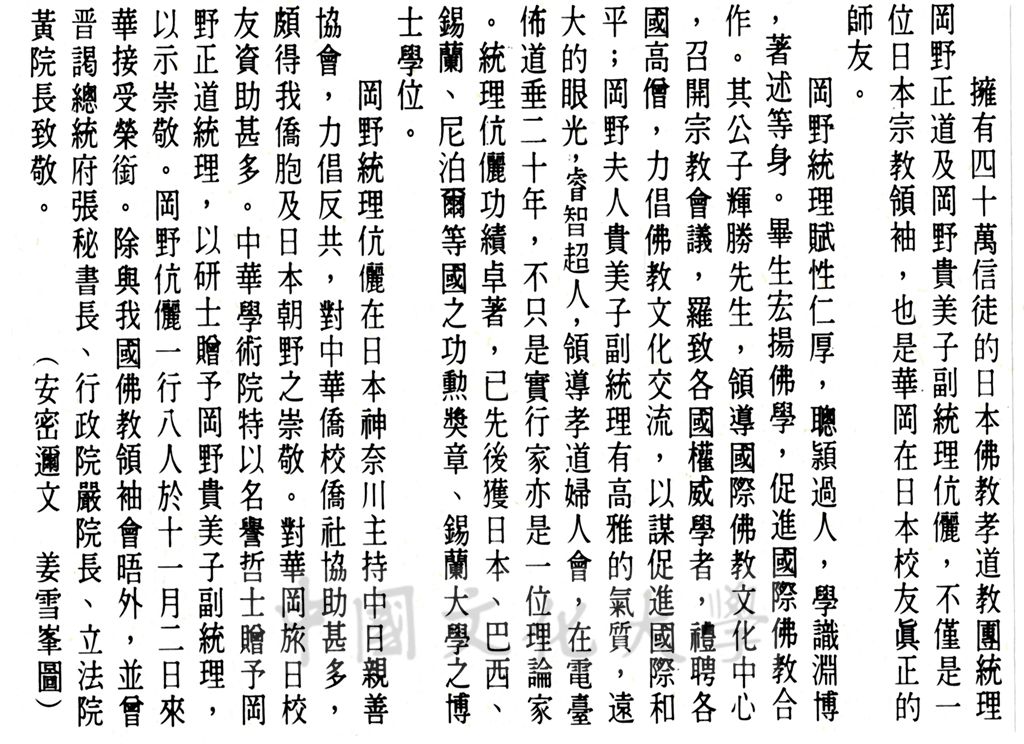 擁有四十萬信徒的日本佛教孝道教團統理
岡野正道及岡野貴美子副統理伉儷，不僅是一
位日本宗教領袖，也是華岡在日本校友眞正的
師友。
岡野統理賦性仁厚，聰穎過人，學識淵博
，著述等身。畢生宏揚佛學，促進國際佛教合
作。其公子輝勝先生，領導國際佛教文化中心
，召開宗教會議，羅致各國權威學者，禮聘各
國高僧，力倡佛教文化交流，以謀促進國際和
平；岡野夫人貴美子副統理有高雅的氣質，遠
大的眼光，睿智超人，領導孝道婦人會，在電臺
佈道垂二十年，不只是實行家亦是一位理論家
。統理伉儷功績卓著，已先後獲日本、巴西、
錫蘭、尼泊爾等國之功勳獎章、錫蘭大學之博
士學位。
岡野統理伉儷在日本神奈川主持中日親善
協會，力倡反共，對中華僑校僑社協助甚多，
頗得我僑胞及日本朝野之崇敬。對華岡旅日校
友資助甚多。中華學術院特以名譽哲士贈予岡
野正道統理，以研士贈予岡野貴美子副統理，
以示崇敬。岡野伉儷一行八人於十一月二日來
華接受榮銜。除與我國佛教領袖會晤外，並曾
晉謁總統府張秘書長、行政院嚴院長、立法院
黃院長致敬。
（安密邇文　姜雪峯圖）
中國文化大學